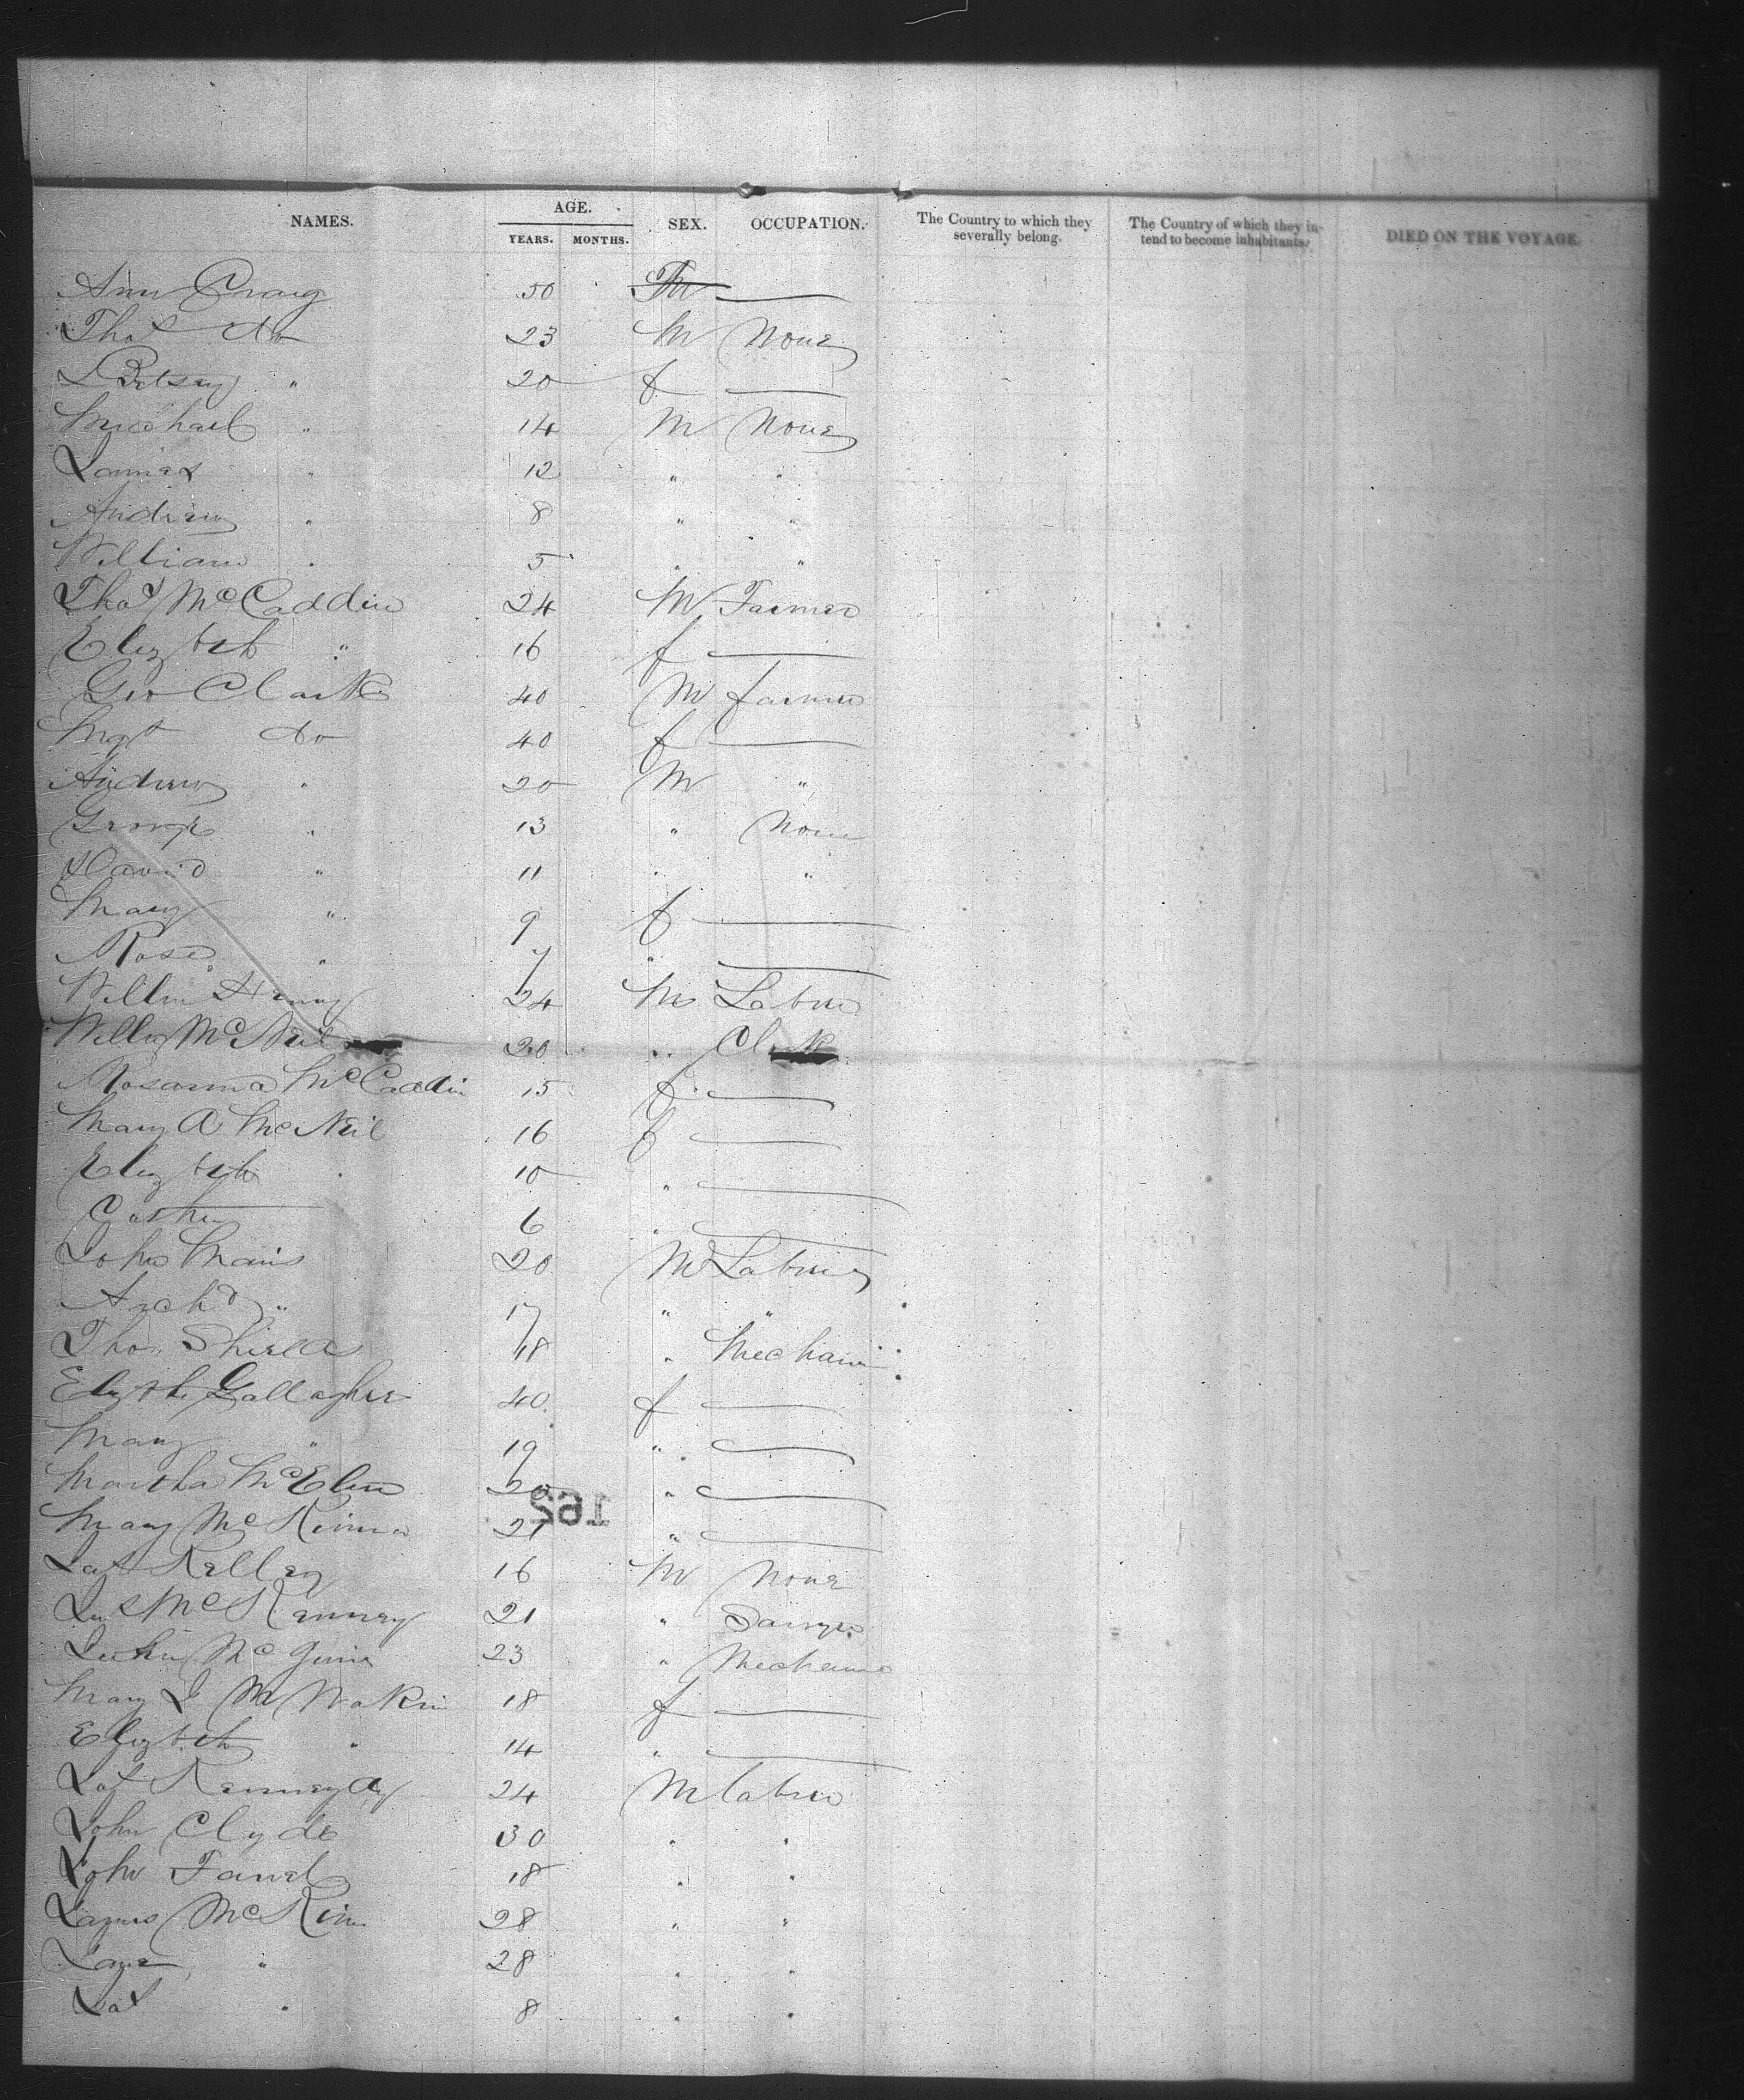 NAMES. AGE. SEX. OCCUPATION. The Country to which they severally belong. The Country of which they intend to become inhabitants. DIED ON THE VOYAGE.
YEARS. MONTHS.
Ann Craig 50
Thos do 23 M None
Betsey " 20 f —
Michael " 14 M None
James " 12 " "
Andrew " 8 " "
William " 5 " "
Thos McCaddin 24 M Farmer
Elizbth " 16 f —
Geo Clark 40 M farmer
Mgt do 40 f —
Andrew " 20 M "
George " 13 " None
David " 11 " "
Mary " 9 f —
Rose " 7 " —
Willm Henry 24 M Labrer
Willm McNeil 20 " Clerk
Rosanna McCaddin 15 f —
Mary A McNeil 16 f —
Elizbth " 10 " —
6 " —
John 20 M Labrer
Archd " 17 " "
Thos 18 " Mechanic
Elizth Gallagher 40 f —
Mary " 19 " —
Martha 20 " —
162
Mary 21 " —
Jas Kelley 16 M None
21 "
McGinn 23 " Mechanic
Mary J 18 f —
Elizbth " 14 " —
Jas Kennedy 24 M labrer
John Clyde 30 " "
John 18 " "
James McKim 28 " "
Jane " 28 " "
Jas " 8 " "